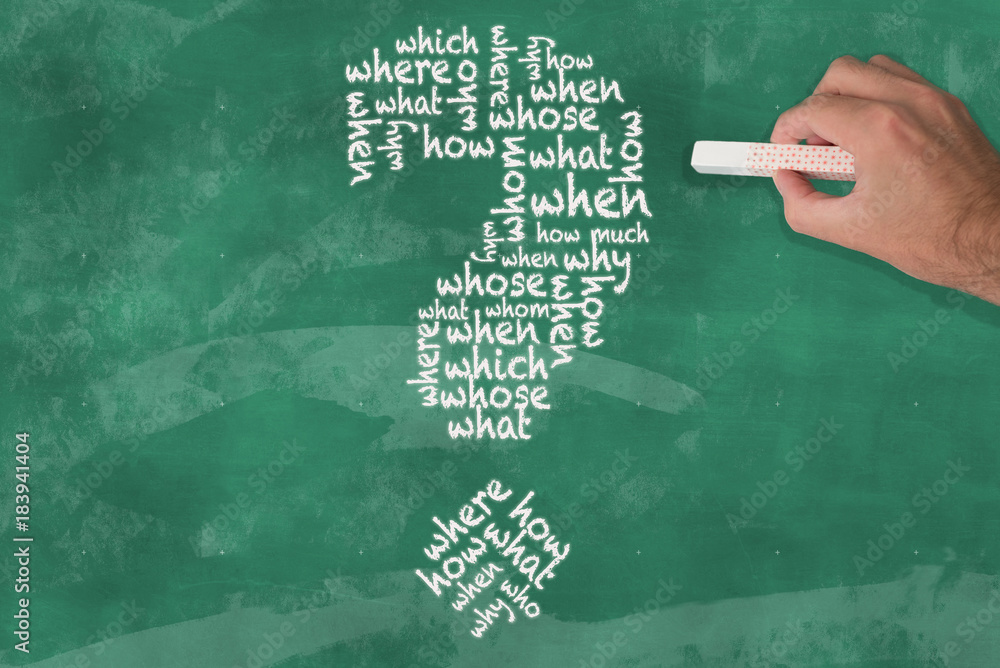 which
where
who
where
why
how
when
what
when
why
how
whose
what
whom
whom
when
how much
why
when
why
whose
how
when
what
whom
where
when
which
whose
what
where
how
how
what
when
who
why
Adobe Stock | #183941404
Adobe Stock